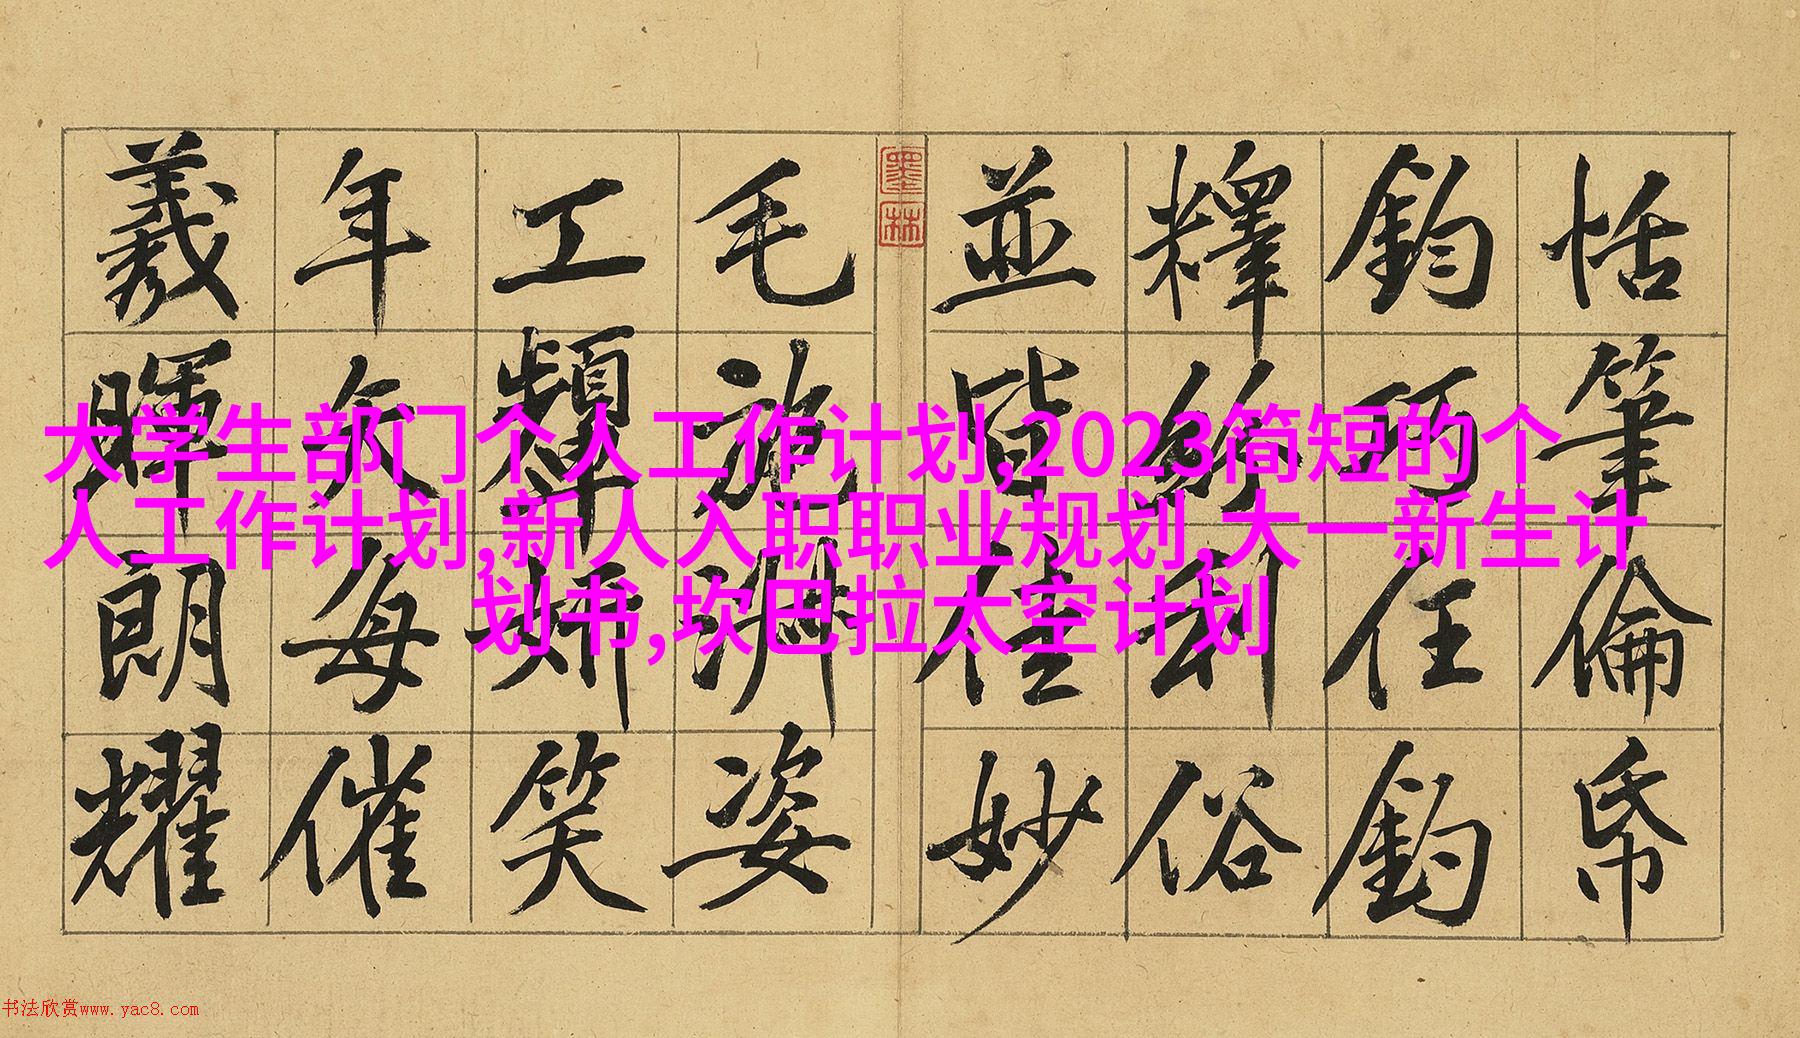 恬筆倫帋
鈞巧任釣
釋紛利俗
並皆佳妙
墨林
毛施淑姿
工顰妍笑
年矢每催
羲暉朗耀
大学生部门个人工作计划,2023简短的个
人工作计划,新人入职职业规划,大一新生计
划书,坎巴拉太空计划
书法欣赏www.yac8.com